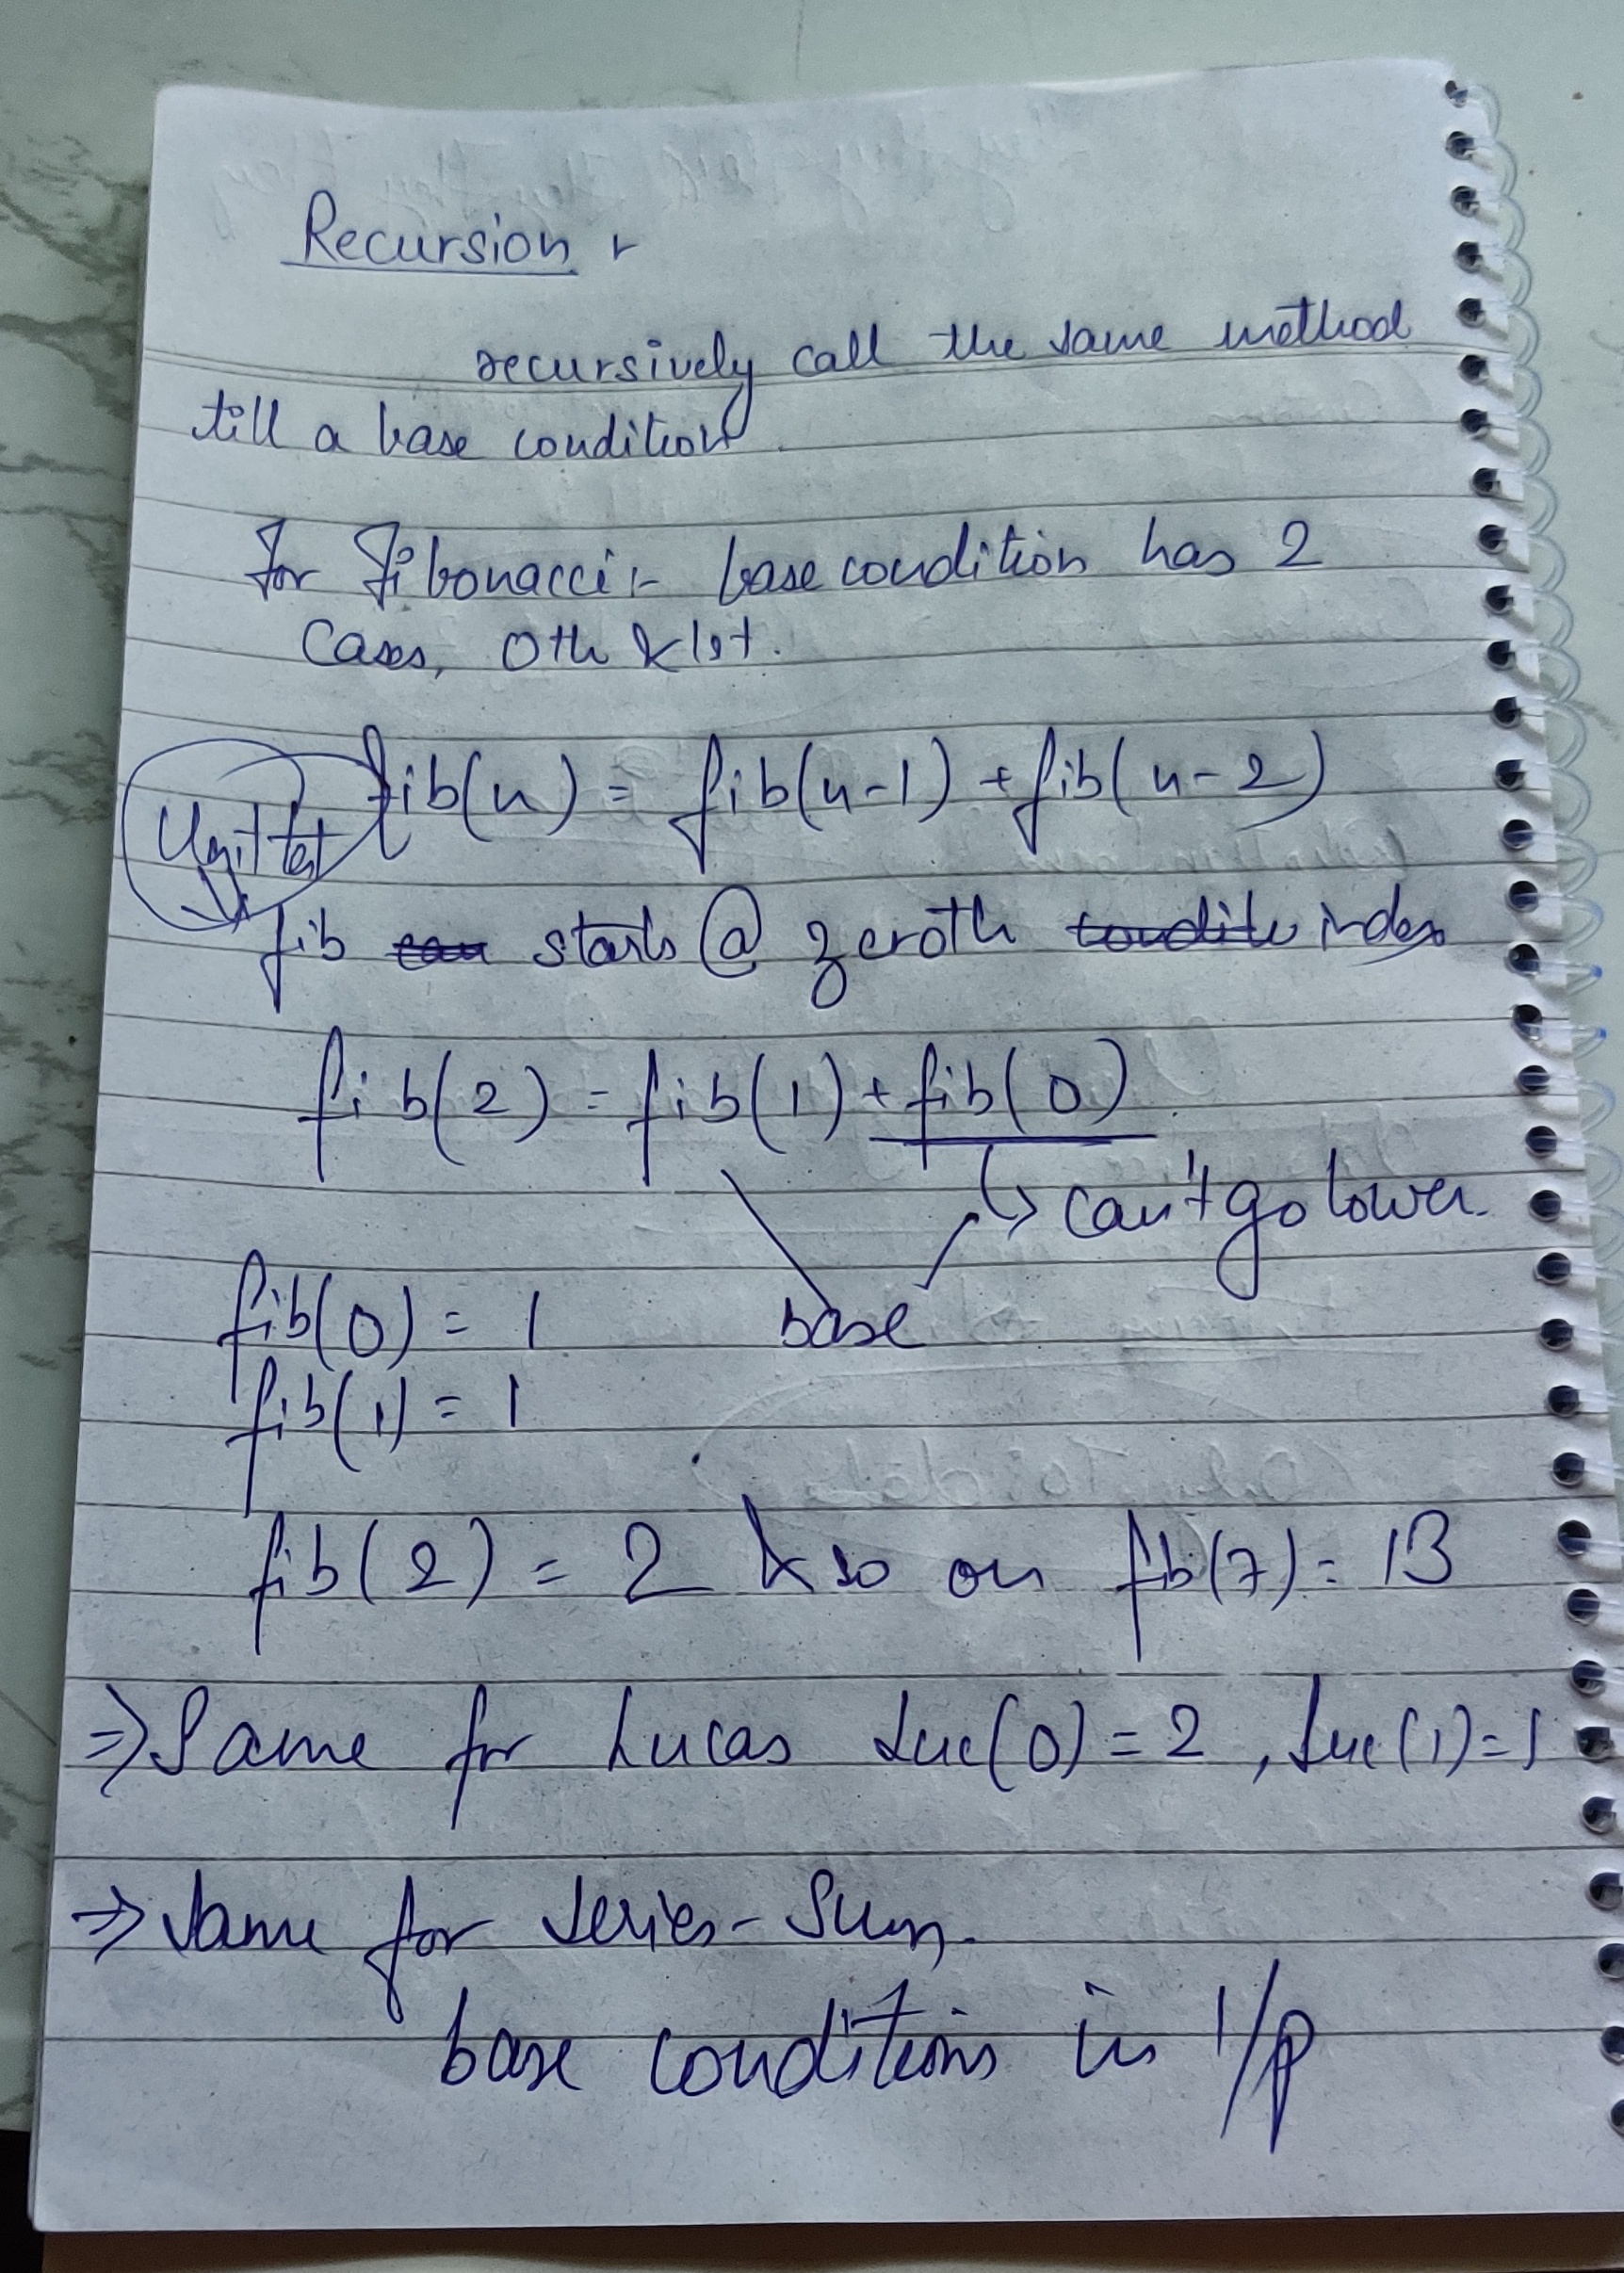 Recursion :-
recursively call the same method
till a base condition.
For Fibonacci :- base condition has 2
Cases, 0th & 1st.
fib(n) = fib(n-1) + fib(n-2)
Unit test
fib starts @ zeroth index
fib(2) = fib(1) + fib(0)
can't go lower.
base
fib(0) = 1
fib(1) = 1
fib(2) = 2 & so on fib(7) = 13
⇒ Same for Lucas Luc(0) = 2, Luc(1) = 1
⇒ Same for Series-Sum.
base conditions in i/p